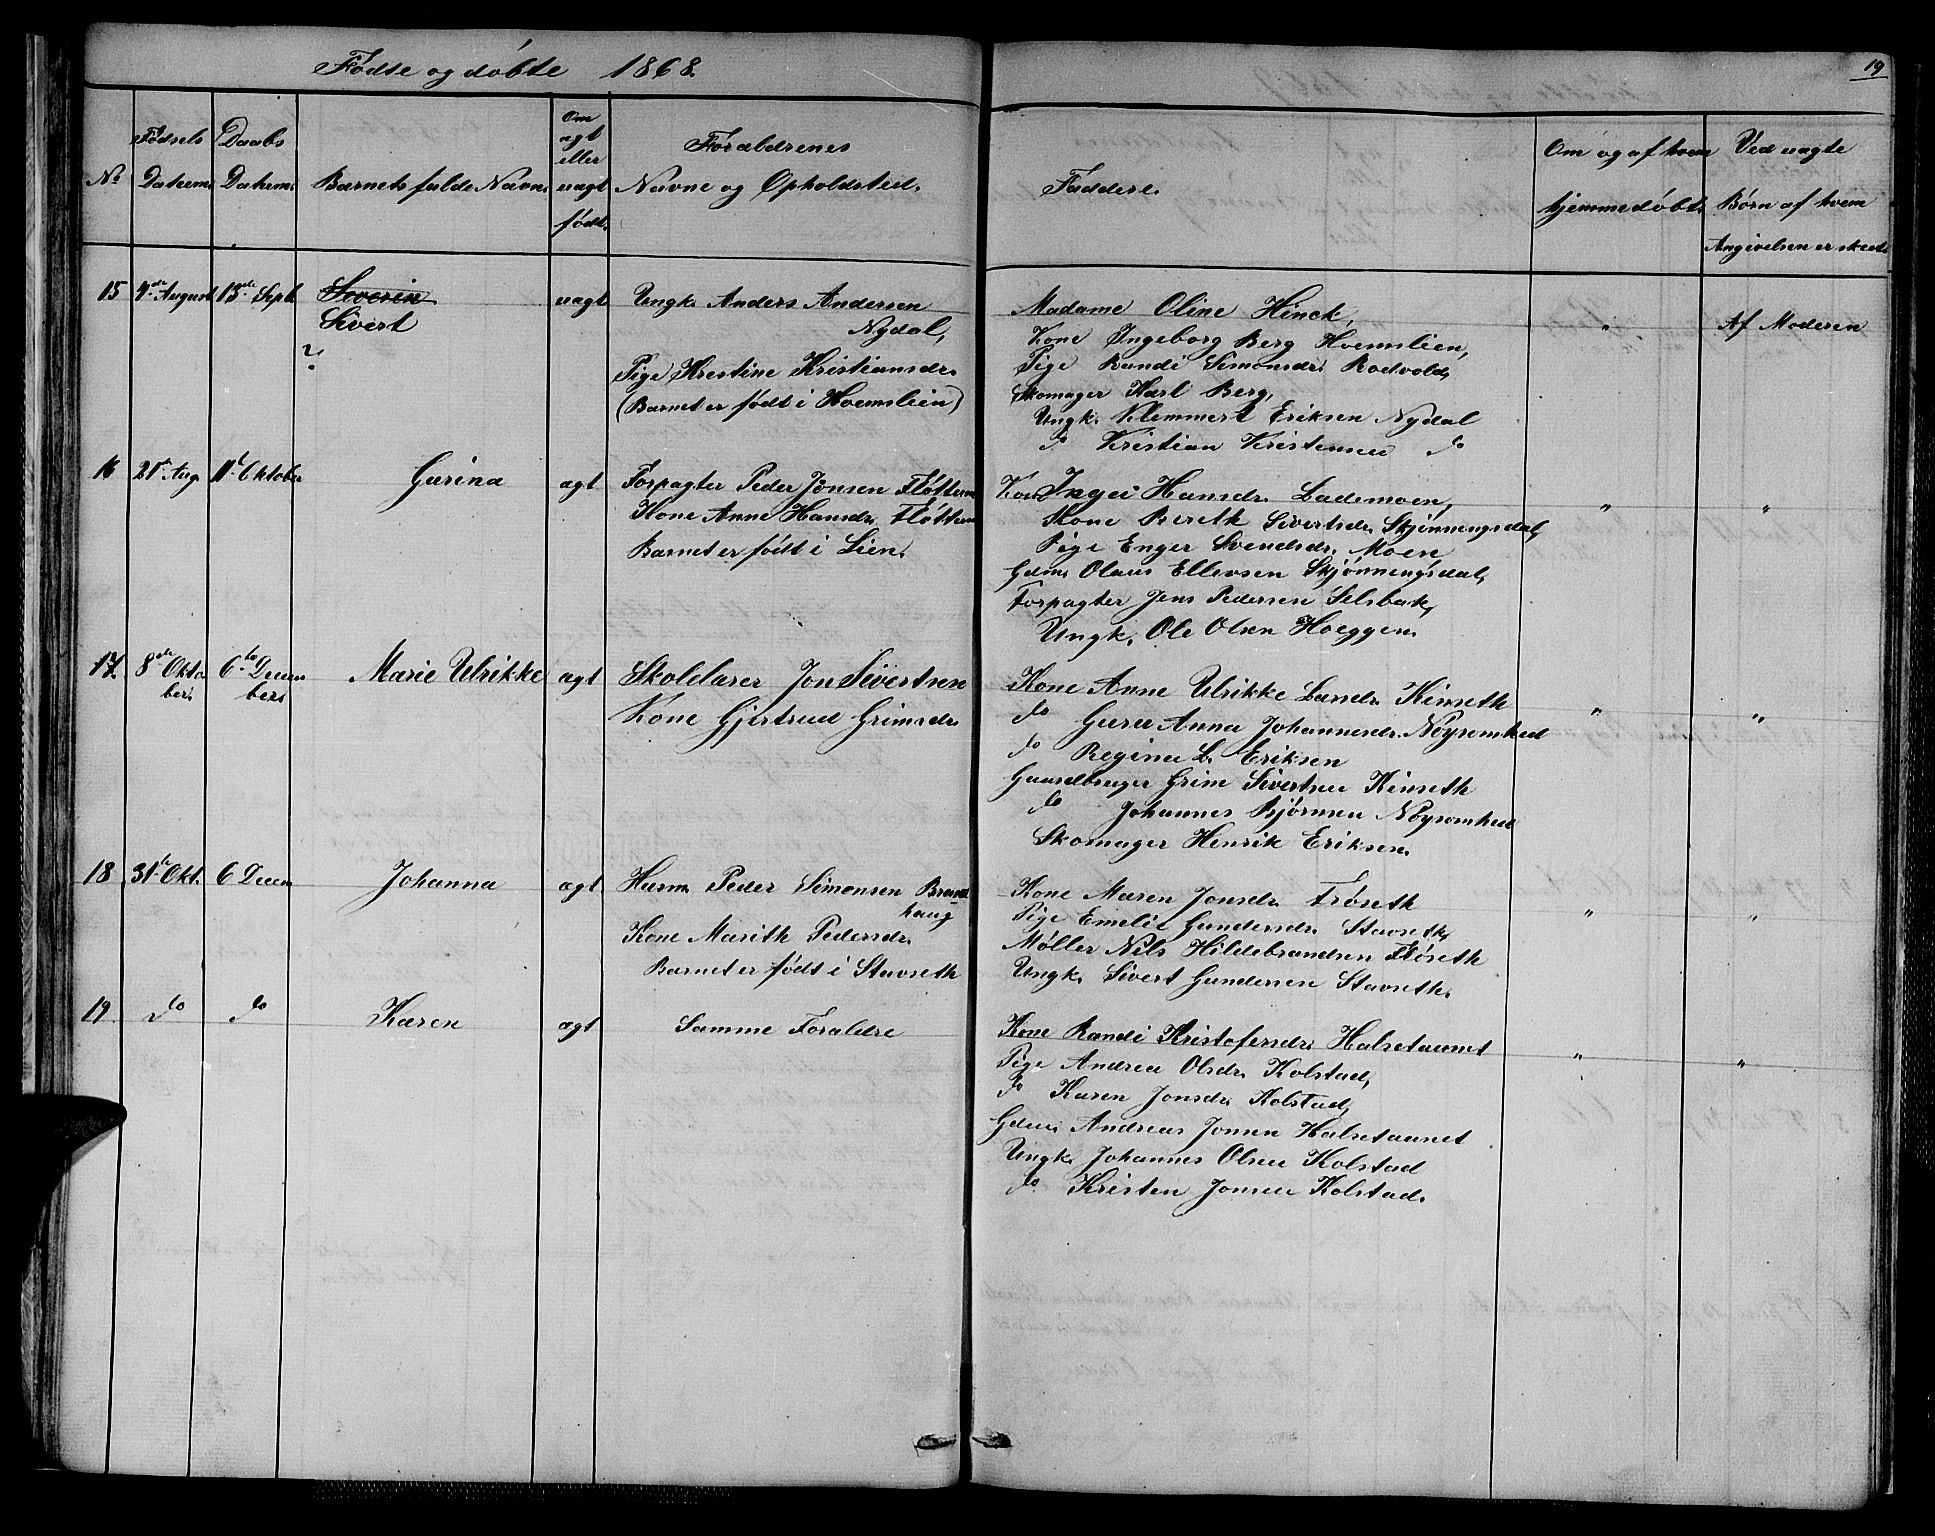 Fødte og døbte 1868.
19
No
Fødsels Datum.
Daabs Datum.
Barnets fulde Navn.
Om ægt eller uægt født.
Forældrenes Navne og Opholdsted.
Faddere.
Om og af hvem hjemmedøbt.
Ved uægte Børn af hvem Angivelsen er skeet.
15 4de August 13de Sept. Severin uagt Ungk. Anders Andersen
Sivert
Nydal,
?
Pige Krestine Kristiansdr.
(Barnet er født i Hoemslien)
Madame Oline Hinck, " Af Moderen
Kone Ingeborg Berg Hoemslien,
Pige Randi Simonsdr. Rodvold,
Skomager Karl Berg,
Ungk. Klemmert Eriksen Nydal
do Kristian Kristensen do
16 21de Aug. 11te Oktober Gurina ægt Forpagter Peder Jonsen Fløttum
Kone Anne Hansdr. Fløttum
Barnet er født i Lien.
Kone Inger Hansdr. Lademoen, " "
Kone Bereth Sivertsdr. Skjønningsdal,
Pige Enger Svendsdr. Moen
Gdm. Olaus Ellevsen Skjønningsdal,
Forpagter Jens Pedersen Selsbak,
Ungk. Ole Olsen Hoeggen.
17. 8de Okto 6te Decem Marie Ulrikke ægt Skolelærer Jon Sivertsen
ber. ber.
Kone Gjertrud Grimsdr.
Kone Anne Ulrikke Larsdr. Kimseth " "
do Guru Anna Johannesdr. Nøysomhed
do Regina L. Eriksen
Gaardbruger Grim Sivertsen Kimseth
do Johannes Bjørnsen Nøysomhed
Skomager Henrik Eriksen.
18 31te Okt. 6 Decem Johanna ægt Husm. Peder Simonsen Brand
haug
Kone Marith Pedersdr.
Barnet er født i Stavseth
Kone Maren Jonsdr. Frøseth " "
Pige Emelie Gundersdr. Stavseth,
Møller Nils Hildebrandsen Fløseth
Ungk. Sivert Gundersen Stavseth.
19 do do Karen ægt Samme Forældre
Kone Randi Kristofersdr. Halsetaunet " "
Pige Andrea Olsdr. Kolstad,
do Karen Jonsdr. Kolstad,
Gdm. Andreas Jonsen Halsetaunet
Ungk. Johannes Olsen Kolstad
do. Kristen Jonsen Kolstad.